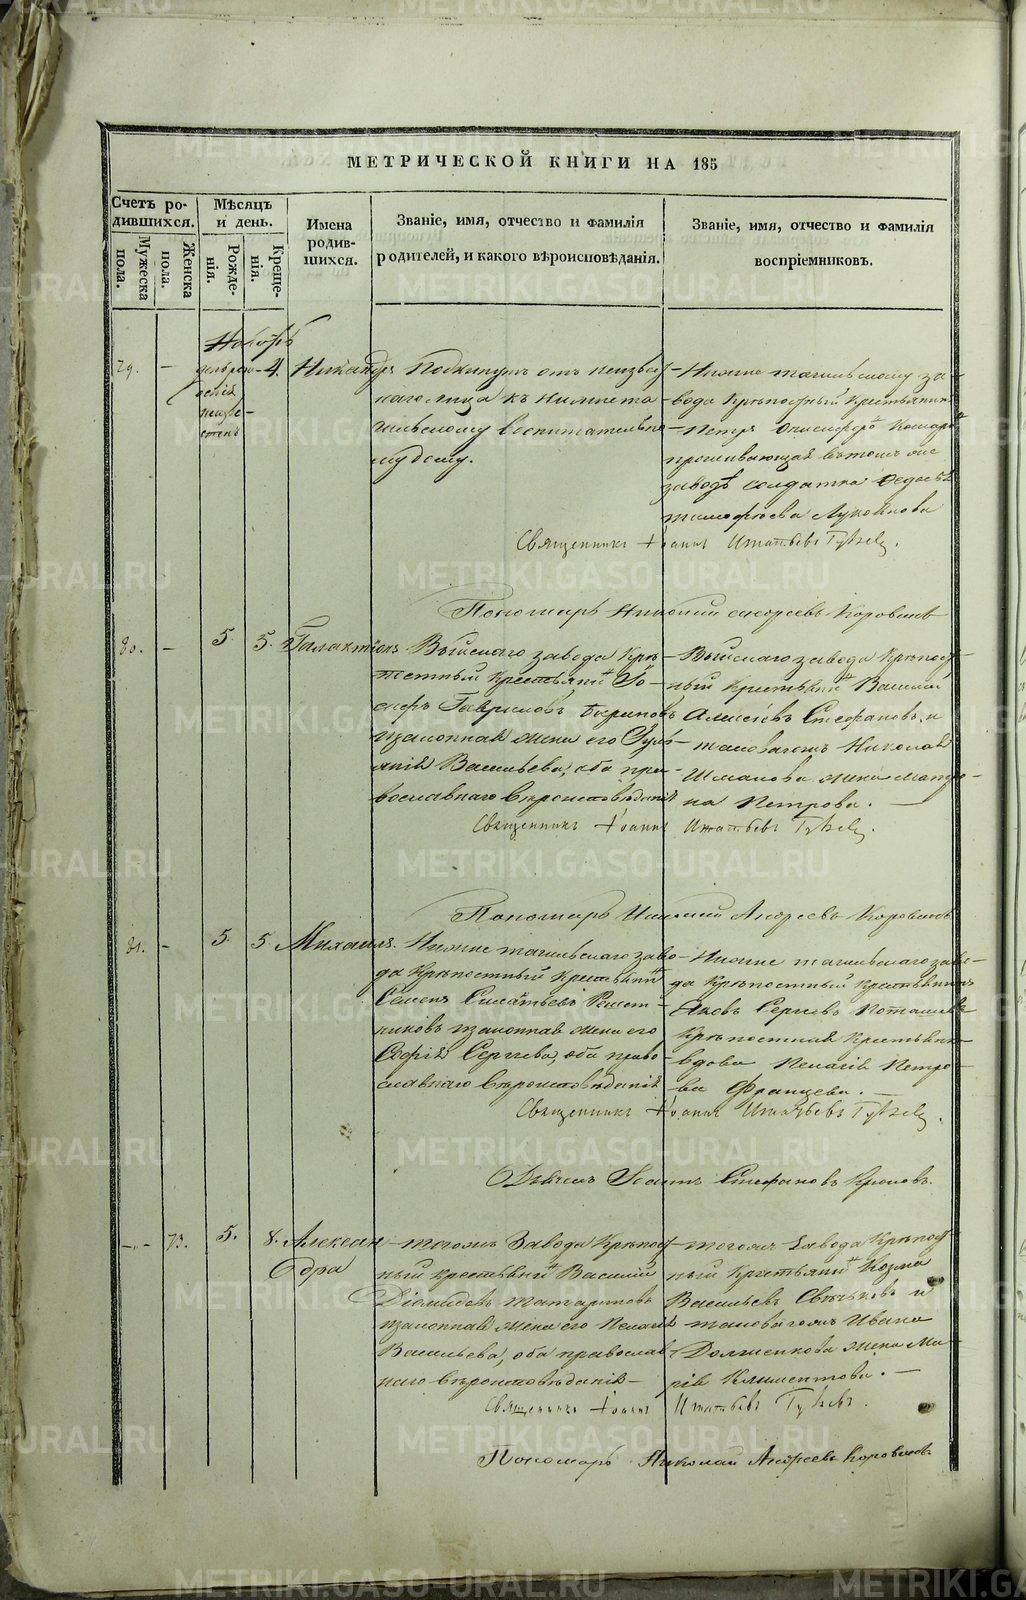 МЕТРИЧЕСКОЙ КНИГИ НА 185
Счетъ ро-
дившихся.
Мужеска
пола.
Женска
пола.
Мѣсяцъ
и день.
Рожде-
нія.
Креще-
нія.
Имена
родив-
шихся.
Званіе, имя, отчество и фамилія
родителей, и какого вѣроисповѣданія.
Званіе, имя, отчество и фамилія
воспріемниковъ.
Ноябрь
79. —
4.
Никандръ
Подкинутъ отъ неизвѣст-
наго лица къ Нижнета-
гильскому воспитательно-
му дому.
Нижне тагильскому за-
вода Крѣпостный Крестьянинъ
Петръ
проживающая въ томъ же
заводѣ солдатка Ѳедосья
тимофѣева
Священникъ Іоаннъ Игнатьевъ
Пономарь Николай Андреевъ Коровинъ
80. — 5 5. Галактіонъ
Выйскаго завода Крѣ-
постный Крестьянинъ Іо-
сифъ Гавриловъ
и законная жена его Іулі-
анія Васильева, оба пра-
вославнаго вѣроисповѣданія
Выйскаго завода Крѣпост-
ный Крестьянинъ Василій
Алексѣевъ Стефановъ и
таковагожъ Николая
Шмакова жена Матро-
на Петрова. —
Священникъ Іоаннъ Игнатьевъ
Пономарь Николай Андреевъ Коровинъ
81. — 5. 5 Михаилъ.
Нижне тагильскаго заво-
да Крѣпостный Крестьянинъ
Семенъ Решет-
никовъ и законная жена его
Софія Сергѣева, оба право-
славнаго вѣроисповѣданія
Нижне тагильскаго заво-
да Крѣпостный Крестьянинъ
Яковъ Сергѣевъ
Крѣпостная Крестьянка
вдова Пелагія Петро-
ва Францева. —
Священникъ Іоаннъ Игнатьевъ
Дьячекъ Стефановъ
73. 5. 8. Алексан-
дра
тогожъ Завода Крѣпост-
ный крестьянинъ Василій
Діомидовъ Татариновъ
и законная жена его Пелагія
Васильева, оба православ-
наго вѣроисповѣданія —
тогожъ завода Крѣпост-
ный Крестьянинъ Козма
Васильевъ и
таковагожъ Ивана
Долженкова жена Ма-
рія Климентова. —
Священникъ Іоаннъ Игнатьевъ
Пономарь Николай Андреевъ Коровинъ
METRIKI.GASO-URAL.RU